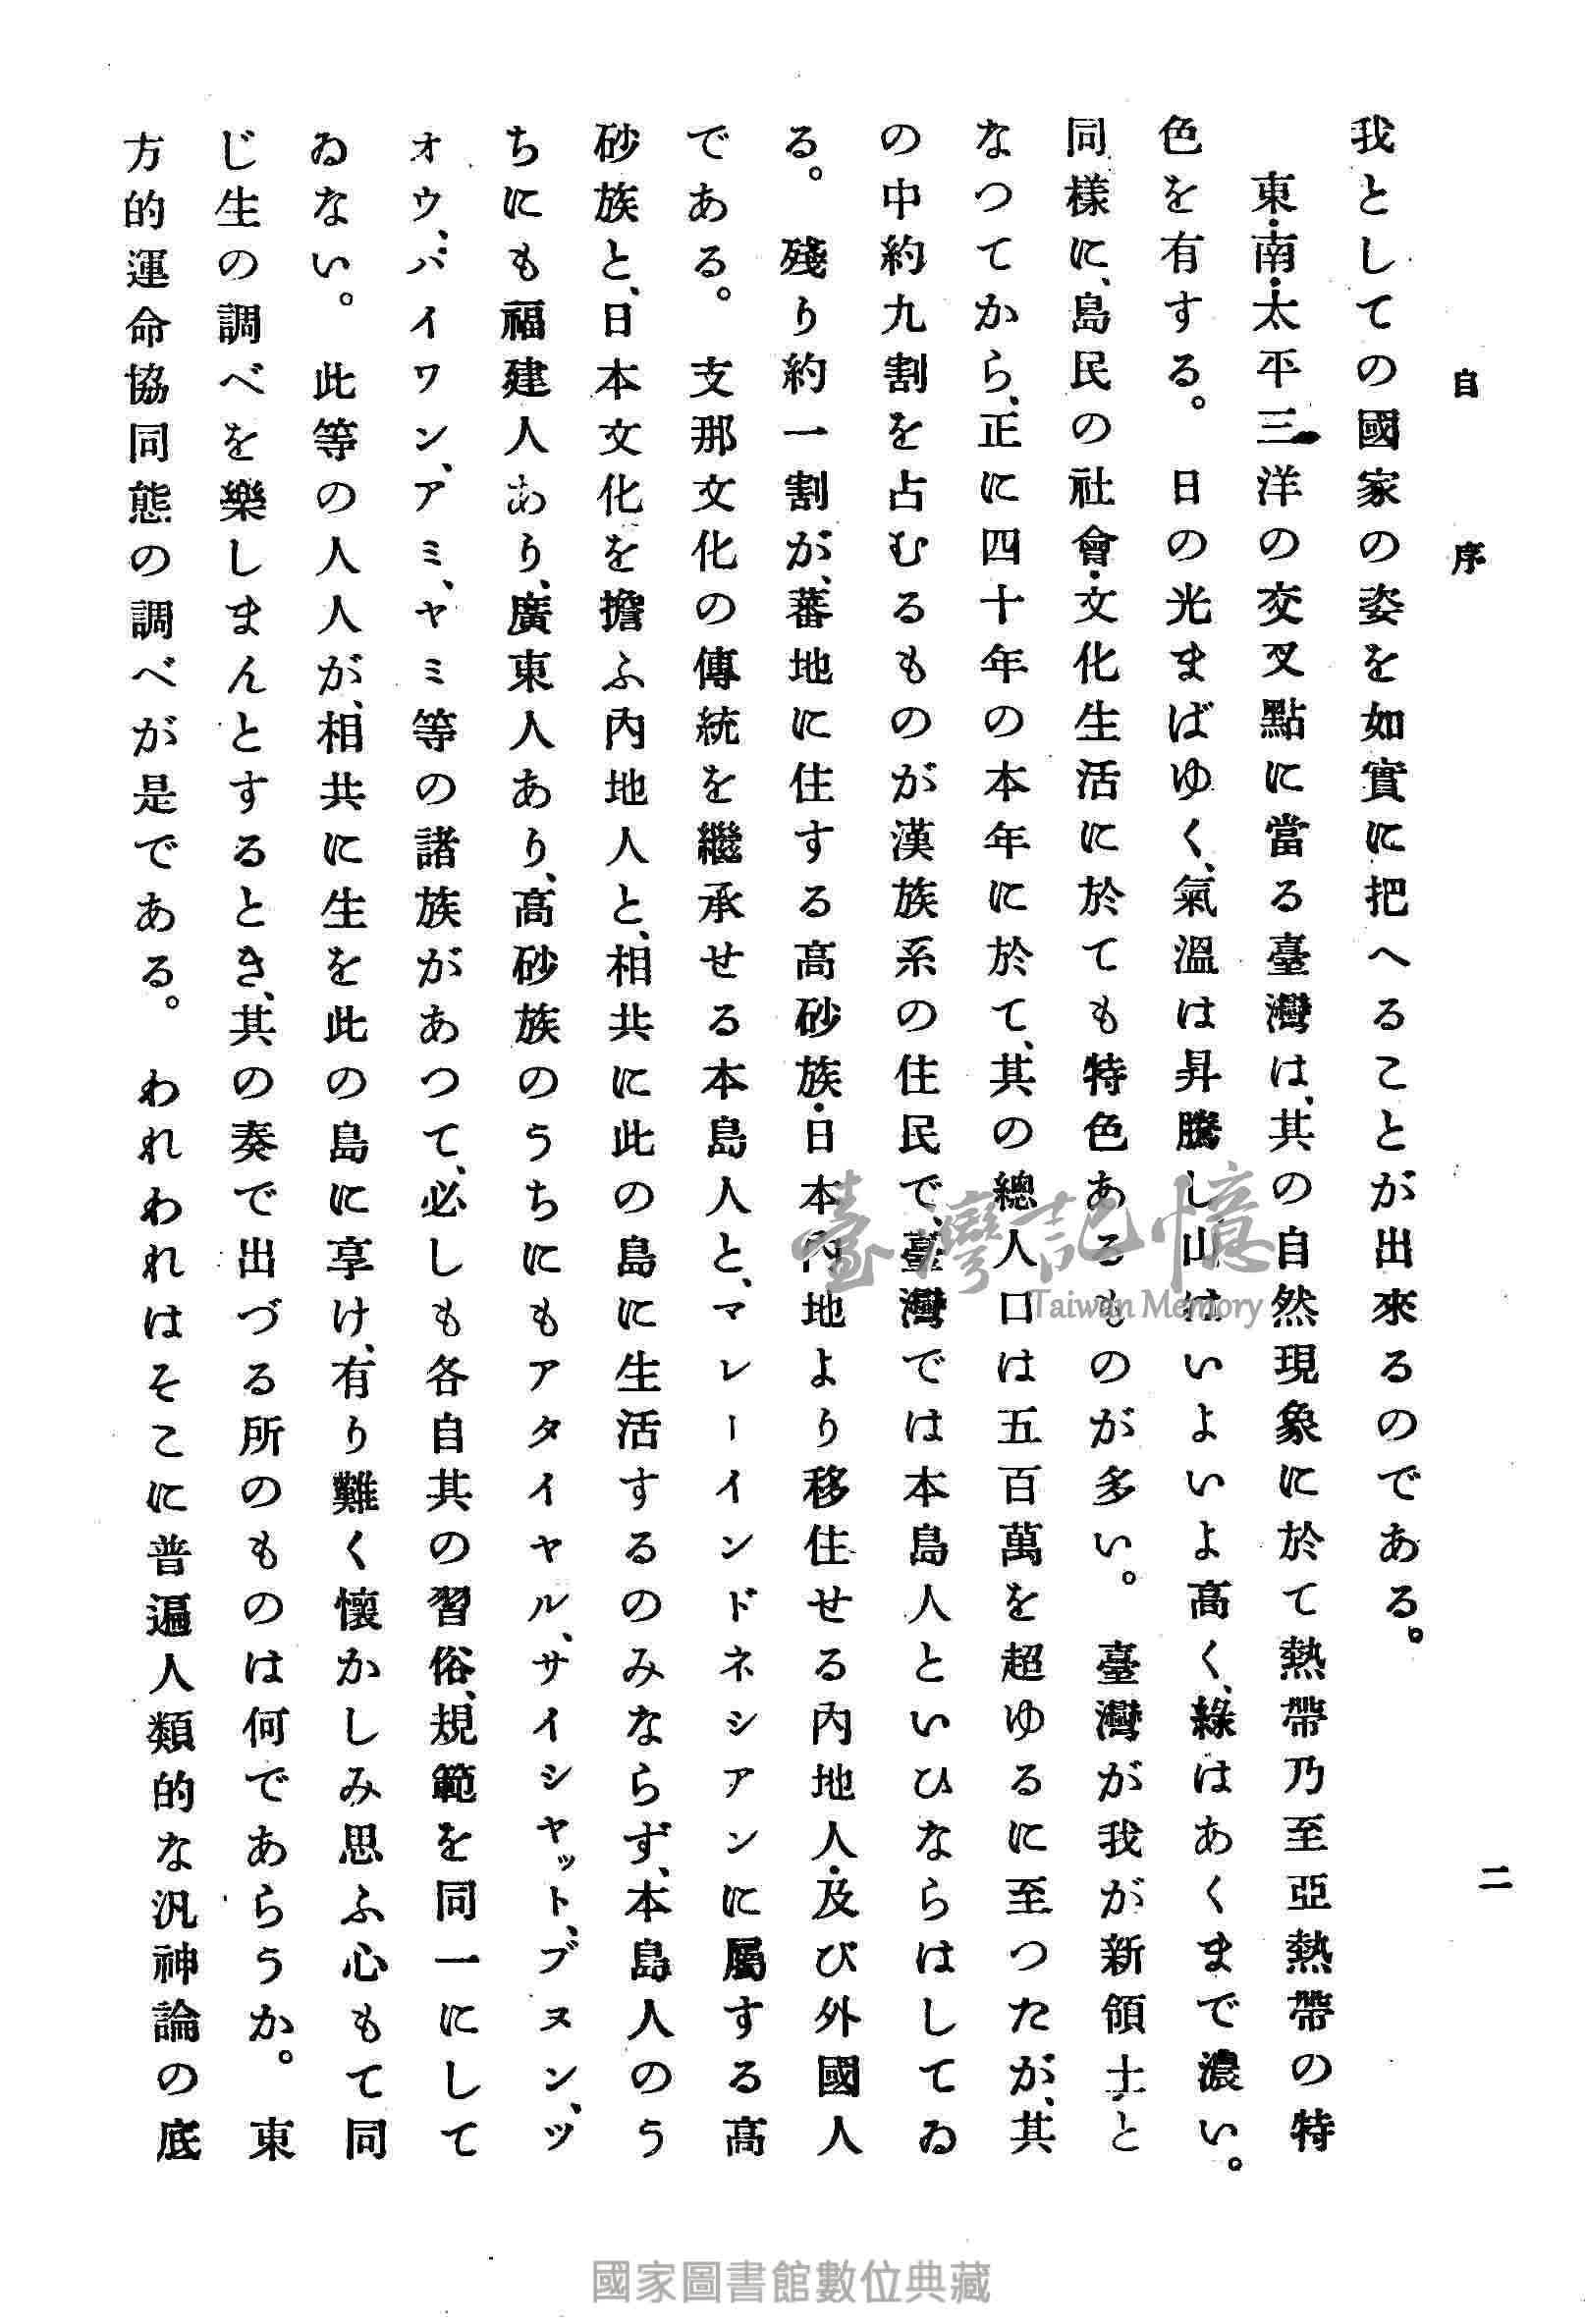 自序
二
我としての國家の姿を如實に把へることが出來るのである。
東・南・太平三洋の交叉點に當る臺灣は、其の自然現象に於て熱帶乃至亞熱帶の特
色を有する。日の光まばゆく、氣溫は昇騰し山はいよいよ高く、綠はあくまで濃い。
同樣に、島民の社會・文化生活に於ても特色あるものが多い。臺灣が我が新領土と
なつてから、正に四十年の本年に於て、其の總人口は五百萬を超ゆるに至つたが、其
の中約九割を占むるものが漢族系の住民で、臺灣では本島人といひならはしてゐ
る。殘り約一割が、蕃地に住する高砂族・日本內地より移住せる內地人・及び外國人
である。支那文化の傳統を繼承せる本島人と、マレーインドネシアンに屬する高
砂族と、日本文化を擔ふ內地人と、相共に此の島に生活するのみならず、本島人のう
ちにも福建人あり、廣東人あり、高砂族のうちにもアタイヤル、サイシヤット、ブヌン、ツ
ォウ、パイワン、アミ、ヤミ等の諸族があつて、必しも各自其の習俗、規範を同一にして
ゐない。此等の人人が、相共に生を此の島に享け、有り難く懷かしみ思ふ心もて同
じ生の調べを樂しまんとするとき、其の奏で出づる所のものは何であらうか。東
方的運命協同態の調べが是である。われわれはそこに普遍人類的な汎神論の底
臺灣記憶
Taiwan Memory
國家圖書館數位典藏